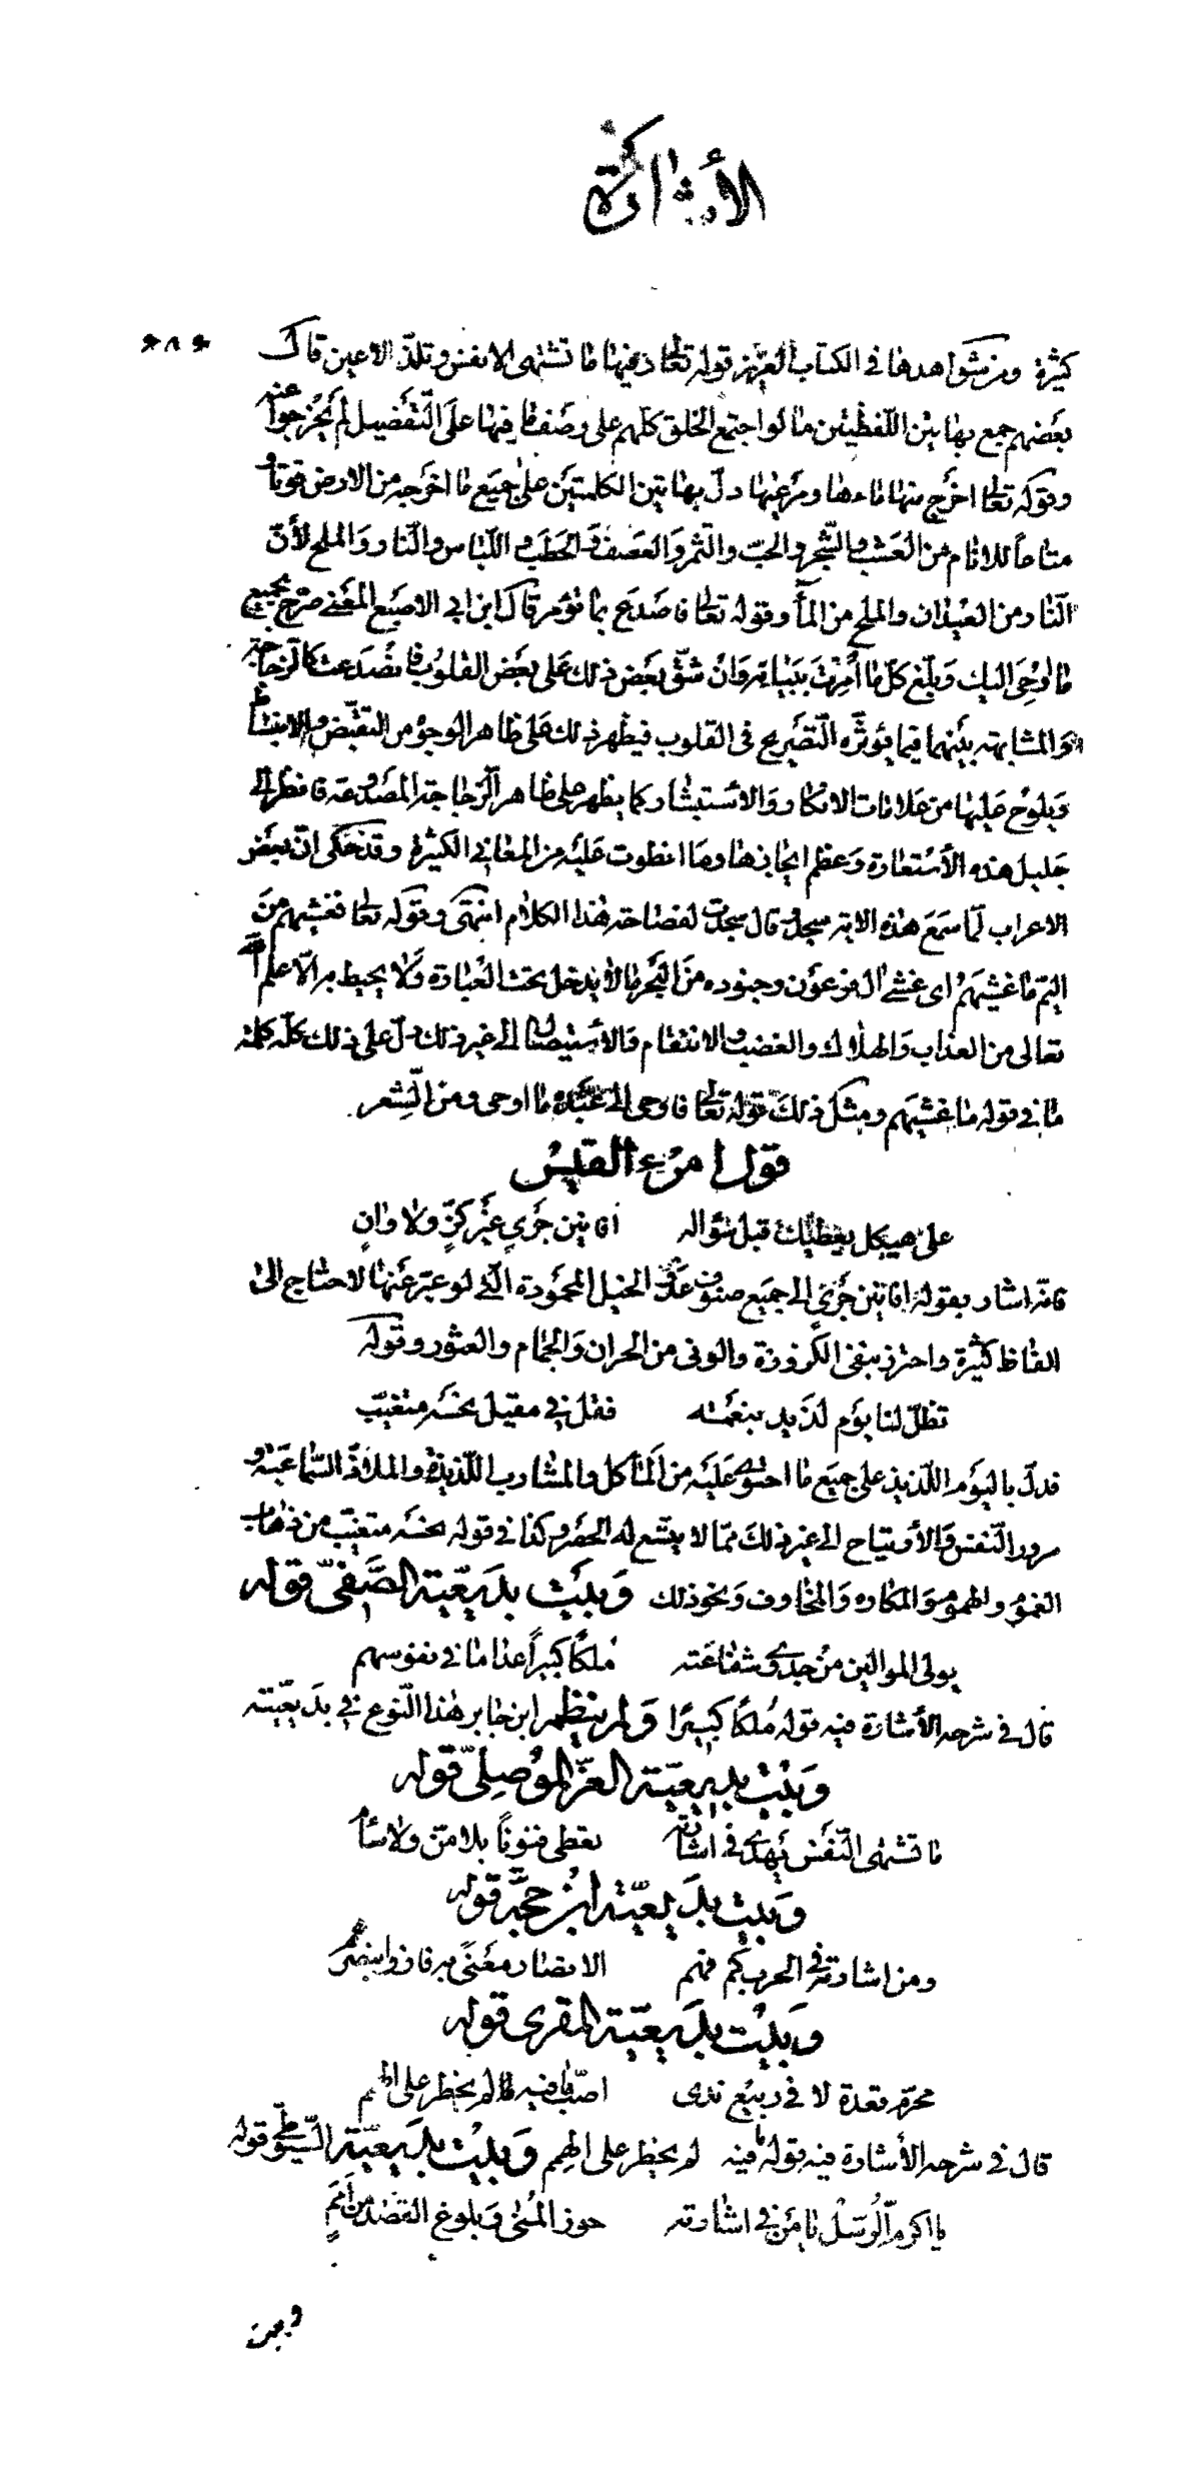 الأشارة
كثيرة ومن شواهدها في الكتاب العزيز قوله تعالى وفيها ما تشتهى الانفس وتلذّ الاعين قال
٭٨٠٭
بعضهم جمع بهاتين اللّفظتين ما لو اجتمع الخلق كلّهم على وصف ما فيها على التّفصيل لم يخرجوا عنه
وقوله تعالى اخرج منها ماءها ومرعيها دلّ بهاتين الكلمتين على جميع ما اخرجه من الارض قوتا و
متاعاً للانام من العشب والشّجر والحبّ والثمر والعصف والحطب واللّباس والنّار والملح لأنّ
النّار من العيدان والملح من المآء وقوله تعالى فاصدع بما تؤمر قال ابن ابى الاصبع المعنى صرّح بجميع
ما اوحى اليك وبلّغ كلّ ما أمرت ببيانه وان شقّ بعض ذلك على بعض القلوب فانصدعت كالزجاجة
والمشابهة بينهما فيما يؤثّره التّصريح فى القلوب فيظهر ذلك على ظاهر الوجوه من التقبّض والانبساط
ويلوح عليها من علامات الانكار والاستبشار كما يظهر على ظاهر الزّجاجة المصدوعة فانظر الى
جليل هذه الأستعارة وعظم ايجازها وما انطوت عليه من المعانى الكثيرة وقد حكى انّ بعض
الاعراب لمّا سمع هذه الاية سجد وقال سجدت لفصاحة هذا الكلام انتهى وقوله تعالى فغشيهم من
اليمّ ما غشيهم اى غشى ال فرعون وجنوده من البحر ما لا يدخل تحت العبارة ولا يحيط به الّا علم الله
تعالى من العذاب والهلاك والغضب والانتقام والأستيصال الى غير ذلك دلّ على ذلك كلّه كلمة
ما في قوله ما غشيهم ومثل ذلك قوله تعالى فاوحى الى عبده ما اوحى ومن الشّعر
قول امرء القيس
على هيكل يعطيك قبل سؤاله افانين جرى غير كزّ ولا وان
فانّه اشار بقوله افانين جرى الى جميع صنوف عدو الخيل المحمودة الّتى لو عبّر عنها لاحتاج الى
الفاظ كثيرة واحترز بنفى الكزوزة والونى من الحران والجماح والعثور وقوله
تظلّ لنا يوم لذيذ بنعمة فقل في مقيل نحسه متغيّب
فدلّ باليوم اللّذيذ على جميع ما احتوى عليه من المآكل والمشارب اللّذيذة والملاذّ السّماعيّة و
سرور النّفس والأرتياح الى غير ذلك ممّا لا يتّسع له الحصر وكذا في قوله نحسه متغيّب من ذهاب
الغموم والهموم والمكاره والمخاوف ونحو ذلك وبيت بديعيّة الصّفىّ قوله
يولى الموالين من جدوى شفاعته ملكاً كبيراً عدا ما في نفوسهم
قال في شرحه الأشارة فيه قوله مُلكاً كبيرًا ولم ينظم ابن جابر هذا النّوع في بديعيّته
وبيت بديعيّة العزّ الموصلىّ قوله
ما تشتهى النّفس يهدى فى اشارته يعطى فنوناً بلا منّ ولا سأم
وبيت بديعيّة ابن حجّة قوله
ومن اشارته في الحرب كم فهم الانصار معنًى به فازوا بنصرهم
وبيت بديعيّة المقرى قوله
محرّم قعدة لا فى ربيع ندى اصبّ فيه ما لم يخطر على الهمم
قال في شرحه الأشارة فيه قوله فيه ما لم يخطر على الهمم وبيت بديعيّة السّيوطى قوله
يا اكرم الرّسل يا من في اشارته حوز المنى وبلوغ القصد من أمم
وبيت